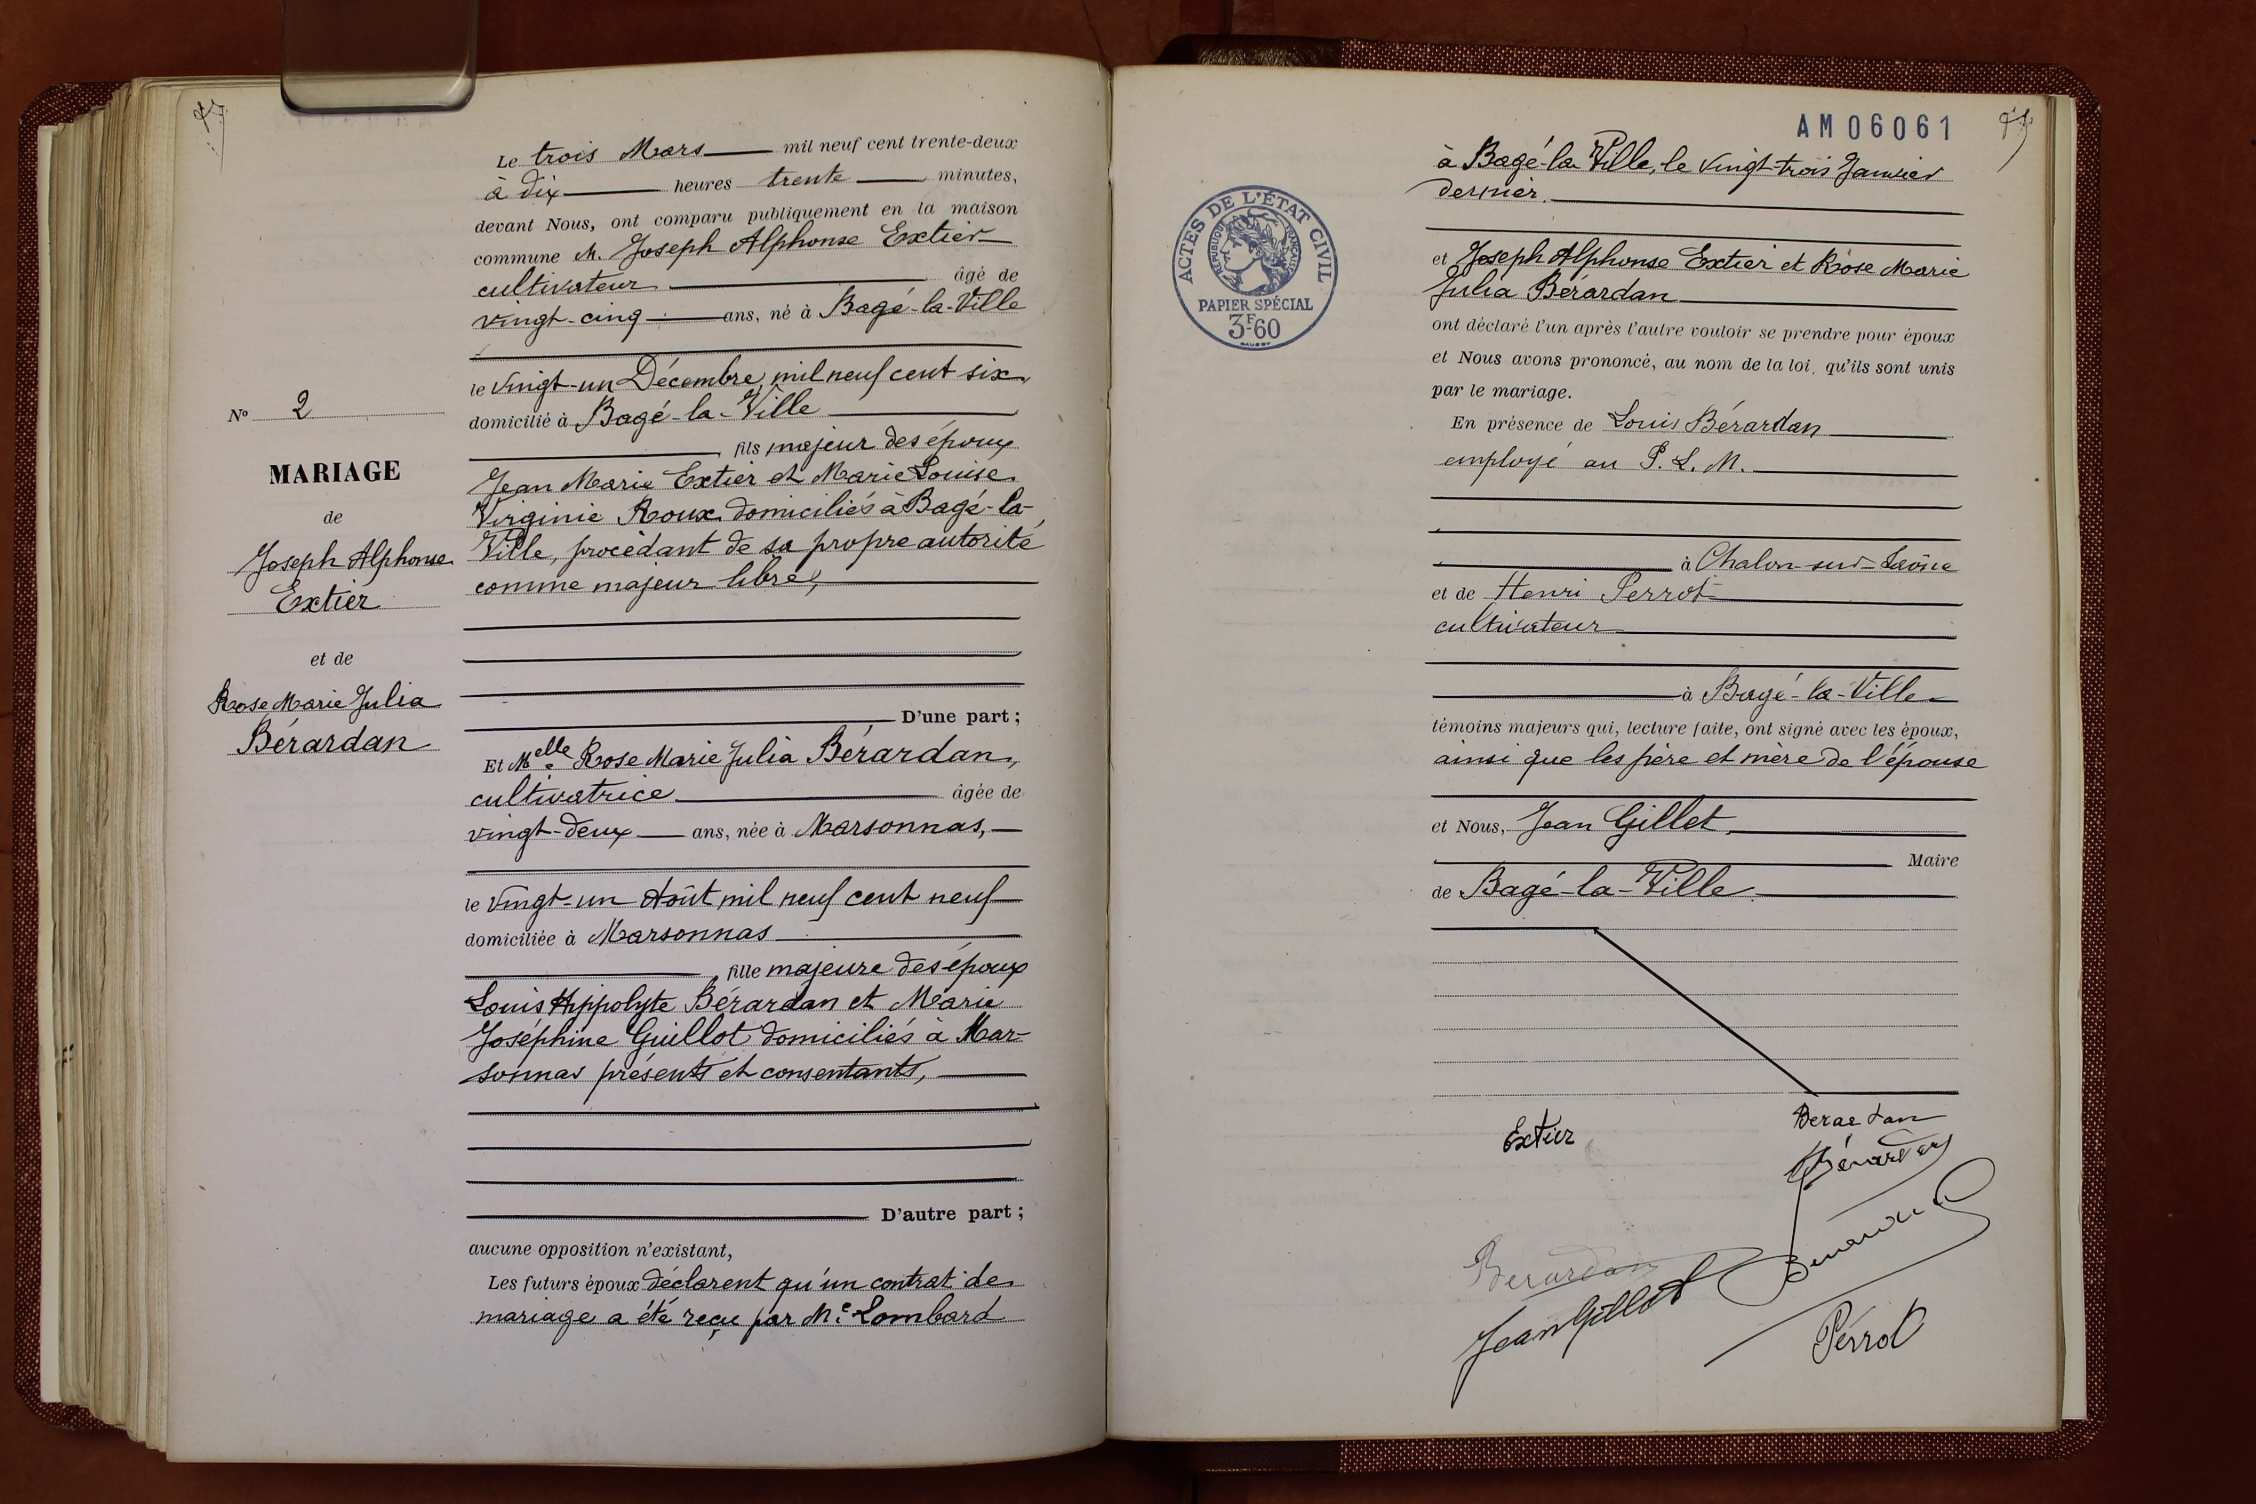 Le trois Mars mil neuf cent trente-deux
à dix heures trente minutes,
devant Nous, ont comparu publiquement en la maison
commune M. Joseph Alphonse Extier
cultivateur âgé de
vingt-cinq ans, né à Bagé-la-Ville
le vingt-un Décembre mil neuf cent six,
domicilié à Bagé-la-Ville
fils majeur des époux
Jean Marie Extier et Marie Louise
Virginie Roux domiciliés à Bagé-la-
Ville, procédant de sa propre autorité
comme majeur libre,
D'une part ;
Et Melle Rose Marie Julia Bérardan,
cultivatrice âgée de
vingt-deux ans, née à Marsonnas,
le vingt-un Août mil neuf cent neuf
domiciliée à Marsonnas
fille majeure des époux
Louis Hippolyte Bérardan et Marie
Joséphine Guillot domiciliés à Mar-
sonnas présents et consentants,
D'autre part ;
aucune opposition n'existant,
Les futurs époux déclarent qu'un contrat de
mariage a été reçu par Me Lombard
No 2
MARIAGE
de
Joseph Alphonse
Extier
et de
Rose Marie Julia
Bérardan
AM06061
à Bagé-la-Ville, le vingt-trois Janvier
dernier.
et Joseph Alphonse Extier et Rose Marie
Julia Bérardan
ont déclaré l'un après l'autre vouloir se prendre pour époux
et Nous avons prononcé, au nom de la loi, qu'ils sont unis
par le mariage.
En présence de Louis Bérardan
employé au P.L.M.
à Chalon-sur-Saône
et de Henri Perrot
cultivateur
à Bagé-la-Ville
témoins majeurs qui, lecture faite, ont signé avec les époux,
ainsi que les père et mère de l'épouse
et Nous, Jean Gillet
Maire
de Bagé-la-Ville.
ACTES DE L'ÉTAT CIVIL
RÉPUBLIQUE FRANÇAISE
PAPIER SPÉCIAL
3F60
Extier
Berardan
Bérardan
Berardan
Jean Gillet
Perrot